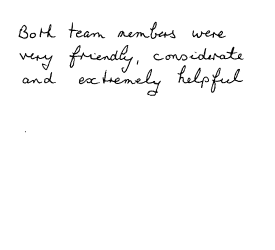 Both team members were
very friendly, considerate
and extremely helpful